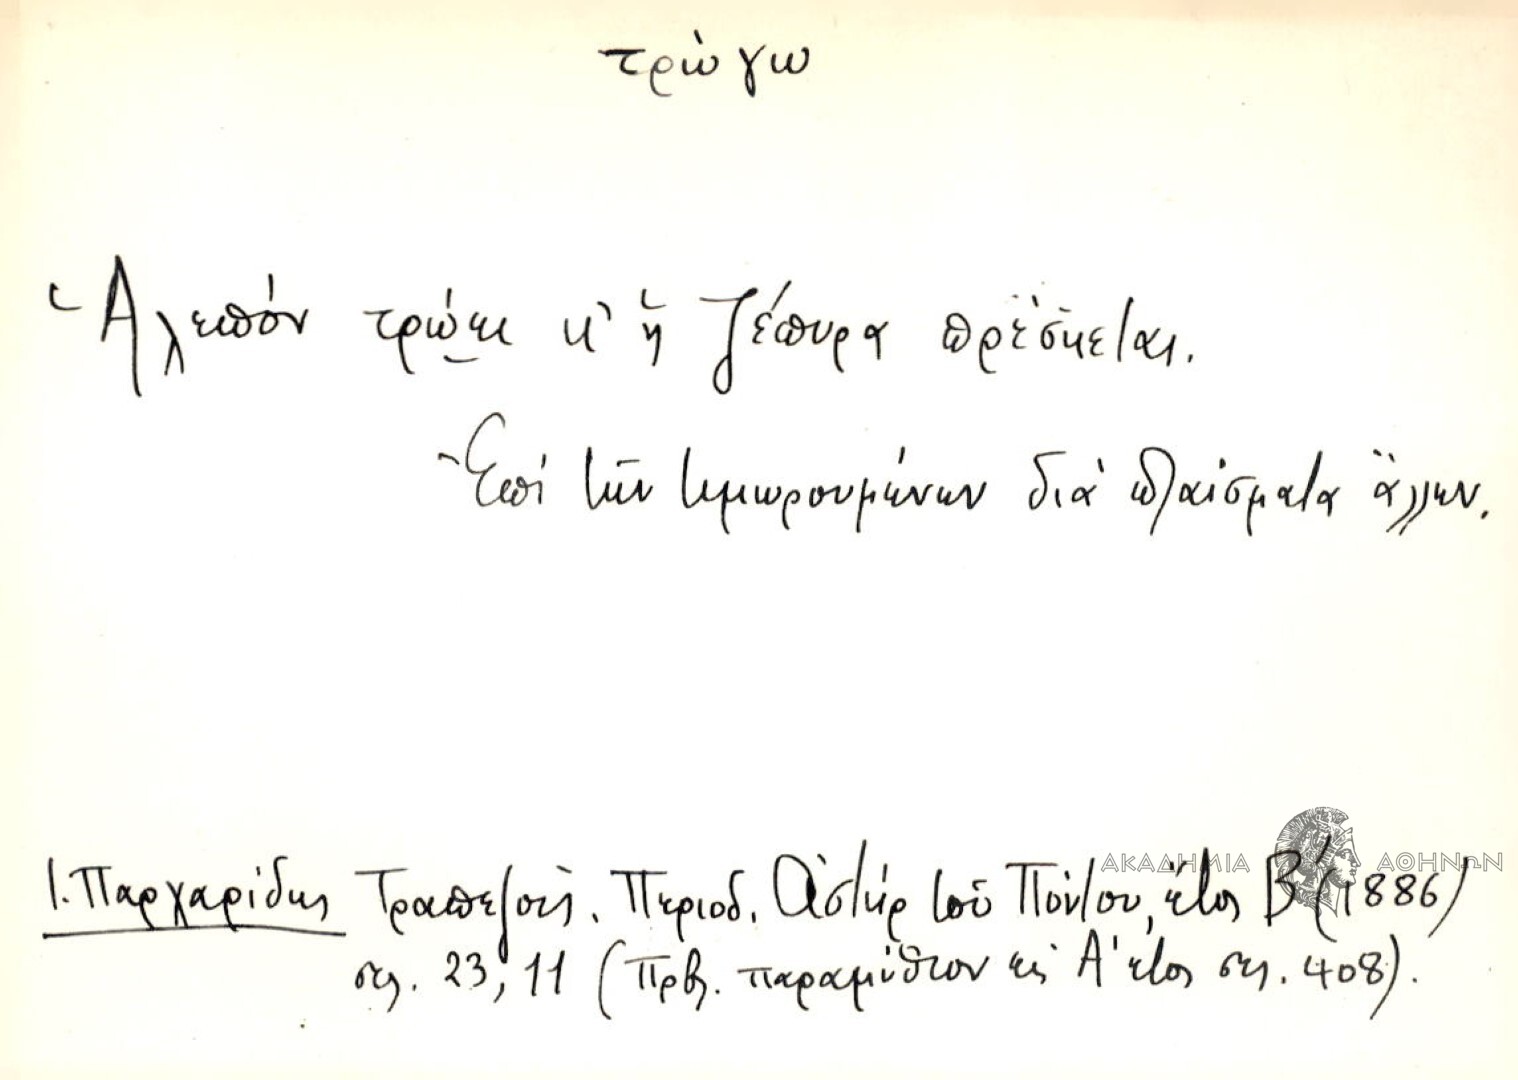 τρώγω
Ἀλεπὸν τρώει κ' ἡ ζέπυρα πρέσκεται.
Ἐπὶ τῶν τιμωρουμένων διὰ πλαίσματα ἄλλων.
ΑΚΑΔΗΜΙΑ ΑΘΗΝΩΝ
Ι. Παρχαρίδης Τραπεζοῦς. Περιοδ. Ἀστὴρ τοῦ Πόντου, ἔτος Β' (1886)
σελ. 23, 11 (Πρβλ. παραμύθιον εἰς Α' ἔτος σελ. 408).